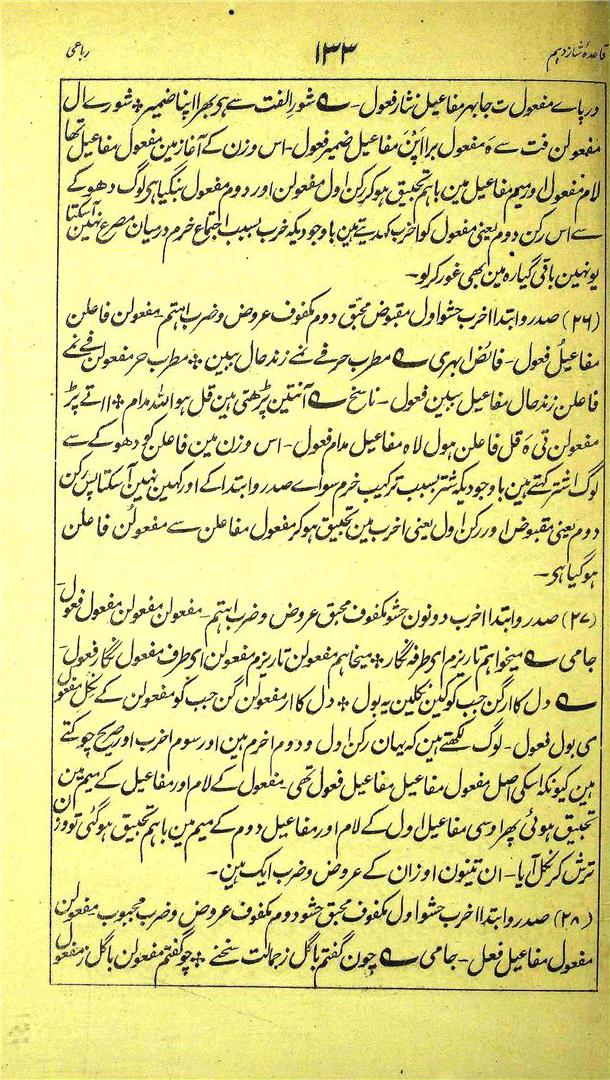 قاعدۂ شانزدہم ۱۳۳ رباعی
دریاے مفعول ت جابہر مفاعیل نثار فعول۔ ؎ شورِ الفت سے ہی بھرا اپنا ضمیر ٭ شورے ال
مفعولن فت سے ہَ مفعول برا اَپنَ مفاعیل ضمیر فعول۔ اس وزن کے آغاز مین مفعول مفاعیل تھا
لام مفعول اور میم مفاعیل مین باہم تحبیق ہو کر رکن اول مفعولن اور دوم مفعول بنگیا ہی لوگ دھوکے
سے اس رکن دوم یعنی مفعول کو اخرب کہدیتے ہین باوجودیکہ خرب بسبب اجتماع خرم درمیان مصرع نہین آسکتا
یونہین باقی گیارہ مین بھی غور کر لو۔
(۲۶) صدر و ابتدا اخرب حشو اول مقبوض محبّق دوم مکفوف عروض و ضرب اہتم۔ مفعولن فاعلن
مفاعیلُ فعول۔ فائض ابہری ؎ مطرب حرفے نمے زند حال ببین ٭ مطرب حر مفعولن فے نمے
فاعلن زند حال مفاعیل ببین فعول۔ ناسخ ؎ آنتین پڑھتی ہین قل ہو اللہ مدام ٭ ااتے پڑ
مفعولن تی ہَ قل فاعلن ہول لاہ مفاعیل مدام فعول۔ اس وزن مین فاعلن کو دھوکے سے
لوگ اشتر کہتے ہین باوجودیکہ شتر بسبب ترکیب خرم سواے صدر و ابتدا کے اور کہین نہین آسکتا پس رکن
دوم یعنی مقبوض اور رکن اول یعنی اخرب مین تحبیق ہو کر مفعول مفاعلن سے مفعولُن فاعلن
ہو گیا ہی۔
(۲۷) صدر و ابتدا اخرب دونون حشو مکفوف محبق عروض و ضرب اہتم۔ مفعولن مفعولن مفعول فعول۔
جامی ؎ میخواہم تا ریزم ای طرفہ نگار ٭ میخاہم مفعولن تا ریزم مفعولن ای طرف مفعول نگار فعول۔
؎ دل کا ارگن جب کو کین نکلین یہ بول ٭ دل کا ار مفعولن گن جب کو مفعولن کے نکل مفعول
ی بول فعول۔ لوگ لکھتے ہین کہ یہان رکن اول و دوم اخرم ہین اور سوم اخرب اور صریح چوکتے
ہین کیونکہ اسکی اصل مفعول مفاعیل مفاعیل فعول تھی۔ مفعول کے لام اور مفاعیل کے میم مین
تحبیق ہوئی پھر اوسی مفاعیل اول کے لام اور مفاعیل دوم کے میم مین باہم تحبیق ہو گئی تو وزن
ترش کر نکل آیا۔ ان تینون اوزان کے عروض و ضرب ایک ہین۔
(۲۸) صدر و ابتدا اخرب حشو اول مکفوف محبق حشو دوم مکفوف عروض و ضرب مجبوب۔ مفعولن
مفعول مفاعیل فعل۔ جامی ؎ چون گفتم با گل ز جمالت سخنے ٭ چو گفتم مفعولن با گل ز مفعول